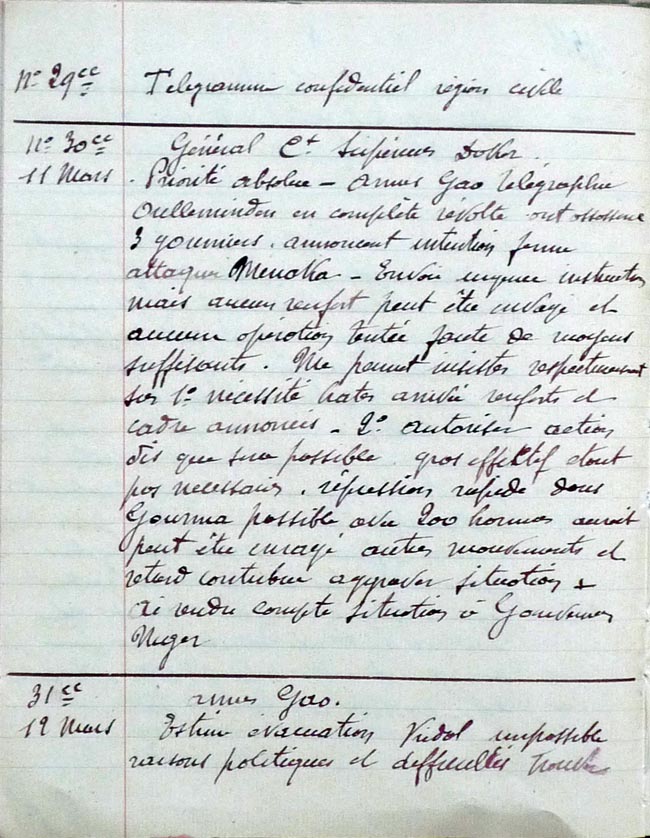 N° 29 cc Telegramme confidentiel région civile
N° 30 cc Général Ct Supérieur Dakar.
11 Mars . Priorité absolue – Armes Gao télégraphie
Oulleminden en complète révolte ont assassiné
3 goumiers. annoncent intention ferme
attaquer Ménaka – Envoie urgence instructions
mais aucun renfort peut être envoyé et
aucune opération tentée faute de moyens
suffisants. Me permet insister respectueusement
sur 1° nécessité hater arrivée renforts et
cadre annoncés – 2° autoriser action
dès que sera possible. gros effectif étant
pas necessaire. répression rapide dans
Gourma possible avec 200 hommes aurait
peut être enrayé autres mouvements et
retard contribue aggraver situation +
Ai rendu compte situation à Gouverneur
Niger
31 cc Armes Gao.
12 Mars Estime évacuation Vidal impossible
raisons politiques et difficultés